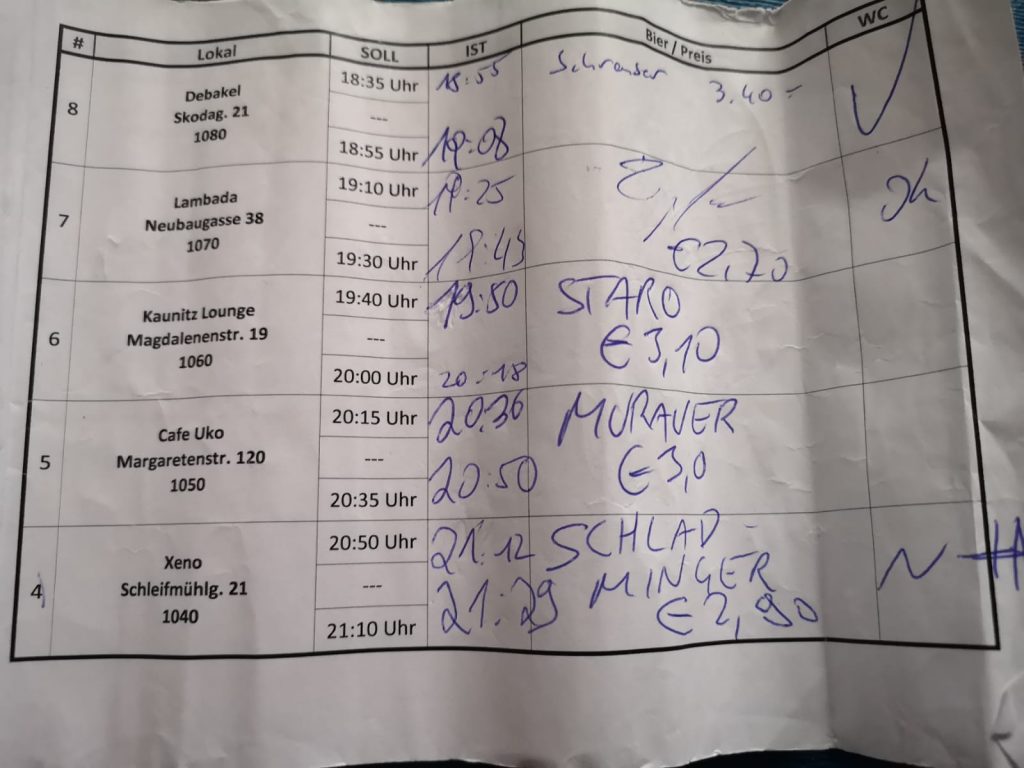 # Lokal SOLL IST Bier / Preis WC
8 Debakel 18:35 Uhr 18:55
Skodag. 21 --- 3.40-
1080 18:55 Uhr 19:08
7 Lambada 19:10 Uhr 19:25
Neubaugasse 38 ---
1070 19:30 Uhr 19:45 €2,70
6 Kaunitz Lounge 19:40 Uhr 19:50 STARO
Magdalenenstr. 19 --- €3,10
1060 20:00 Uhr 20:18
5 Cafe Uko 20:15 Uhr 20:36 MURAUER
Margaretenstr. 120 --- €3,0
1050 20:35 Uhr 20:50
4 Xeno 20:50 Uhr 21:12 SCHLAD-
Schleifmühlg. 21 --- MINGER
1040 21:10 Uhr 21:29 €2,90